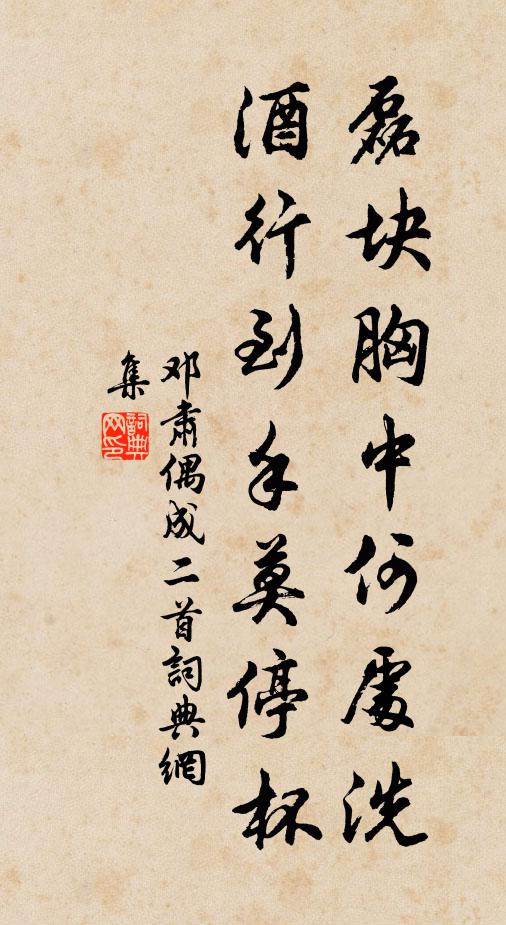 磊块胸中何處洗
酒行到手莫停杯
邓肅偶成二首詞典網
集
詞典网印